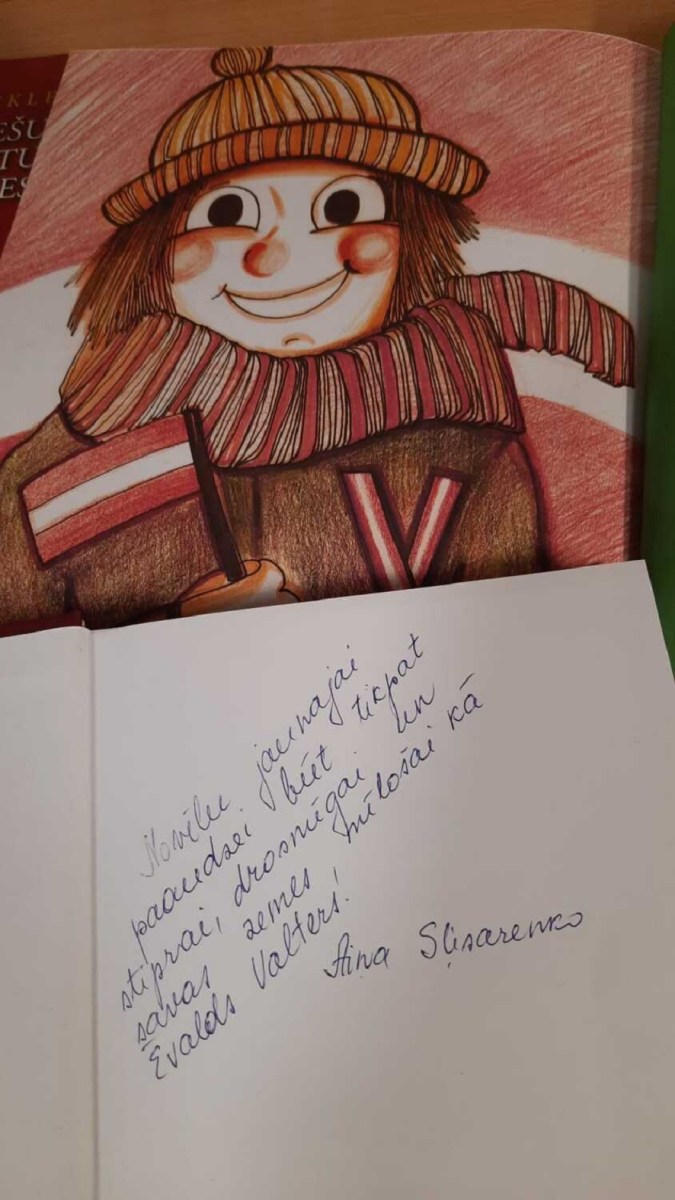 KLE
EŠU
TU
ES
Novēlu jaunajai
paaudzei būt tikpat
stiprai, drosmīgai un
savas zemes mīlošai kā
Ēvalds Valters!
Aiņa Sļisarenko